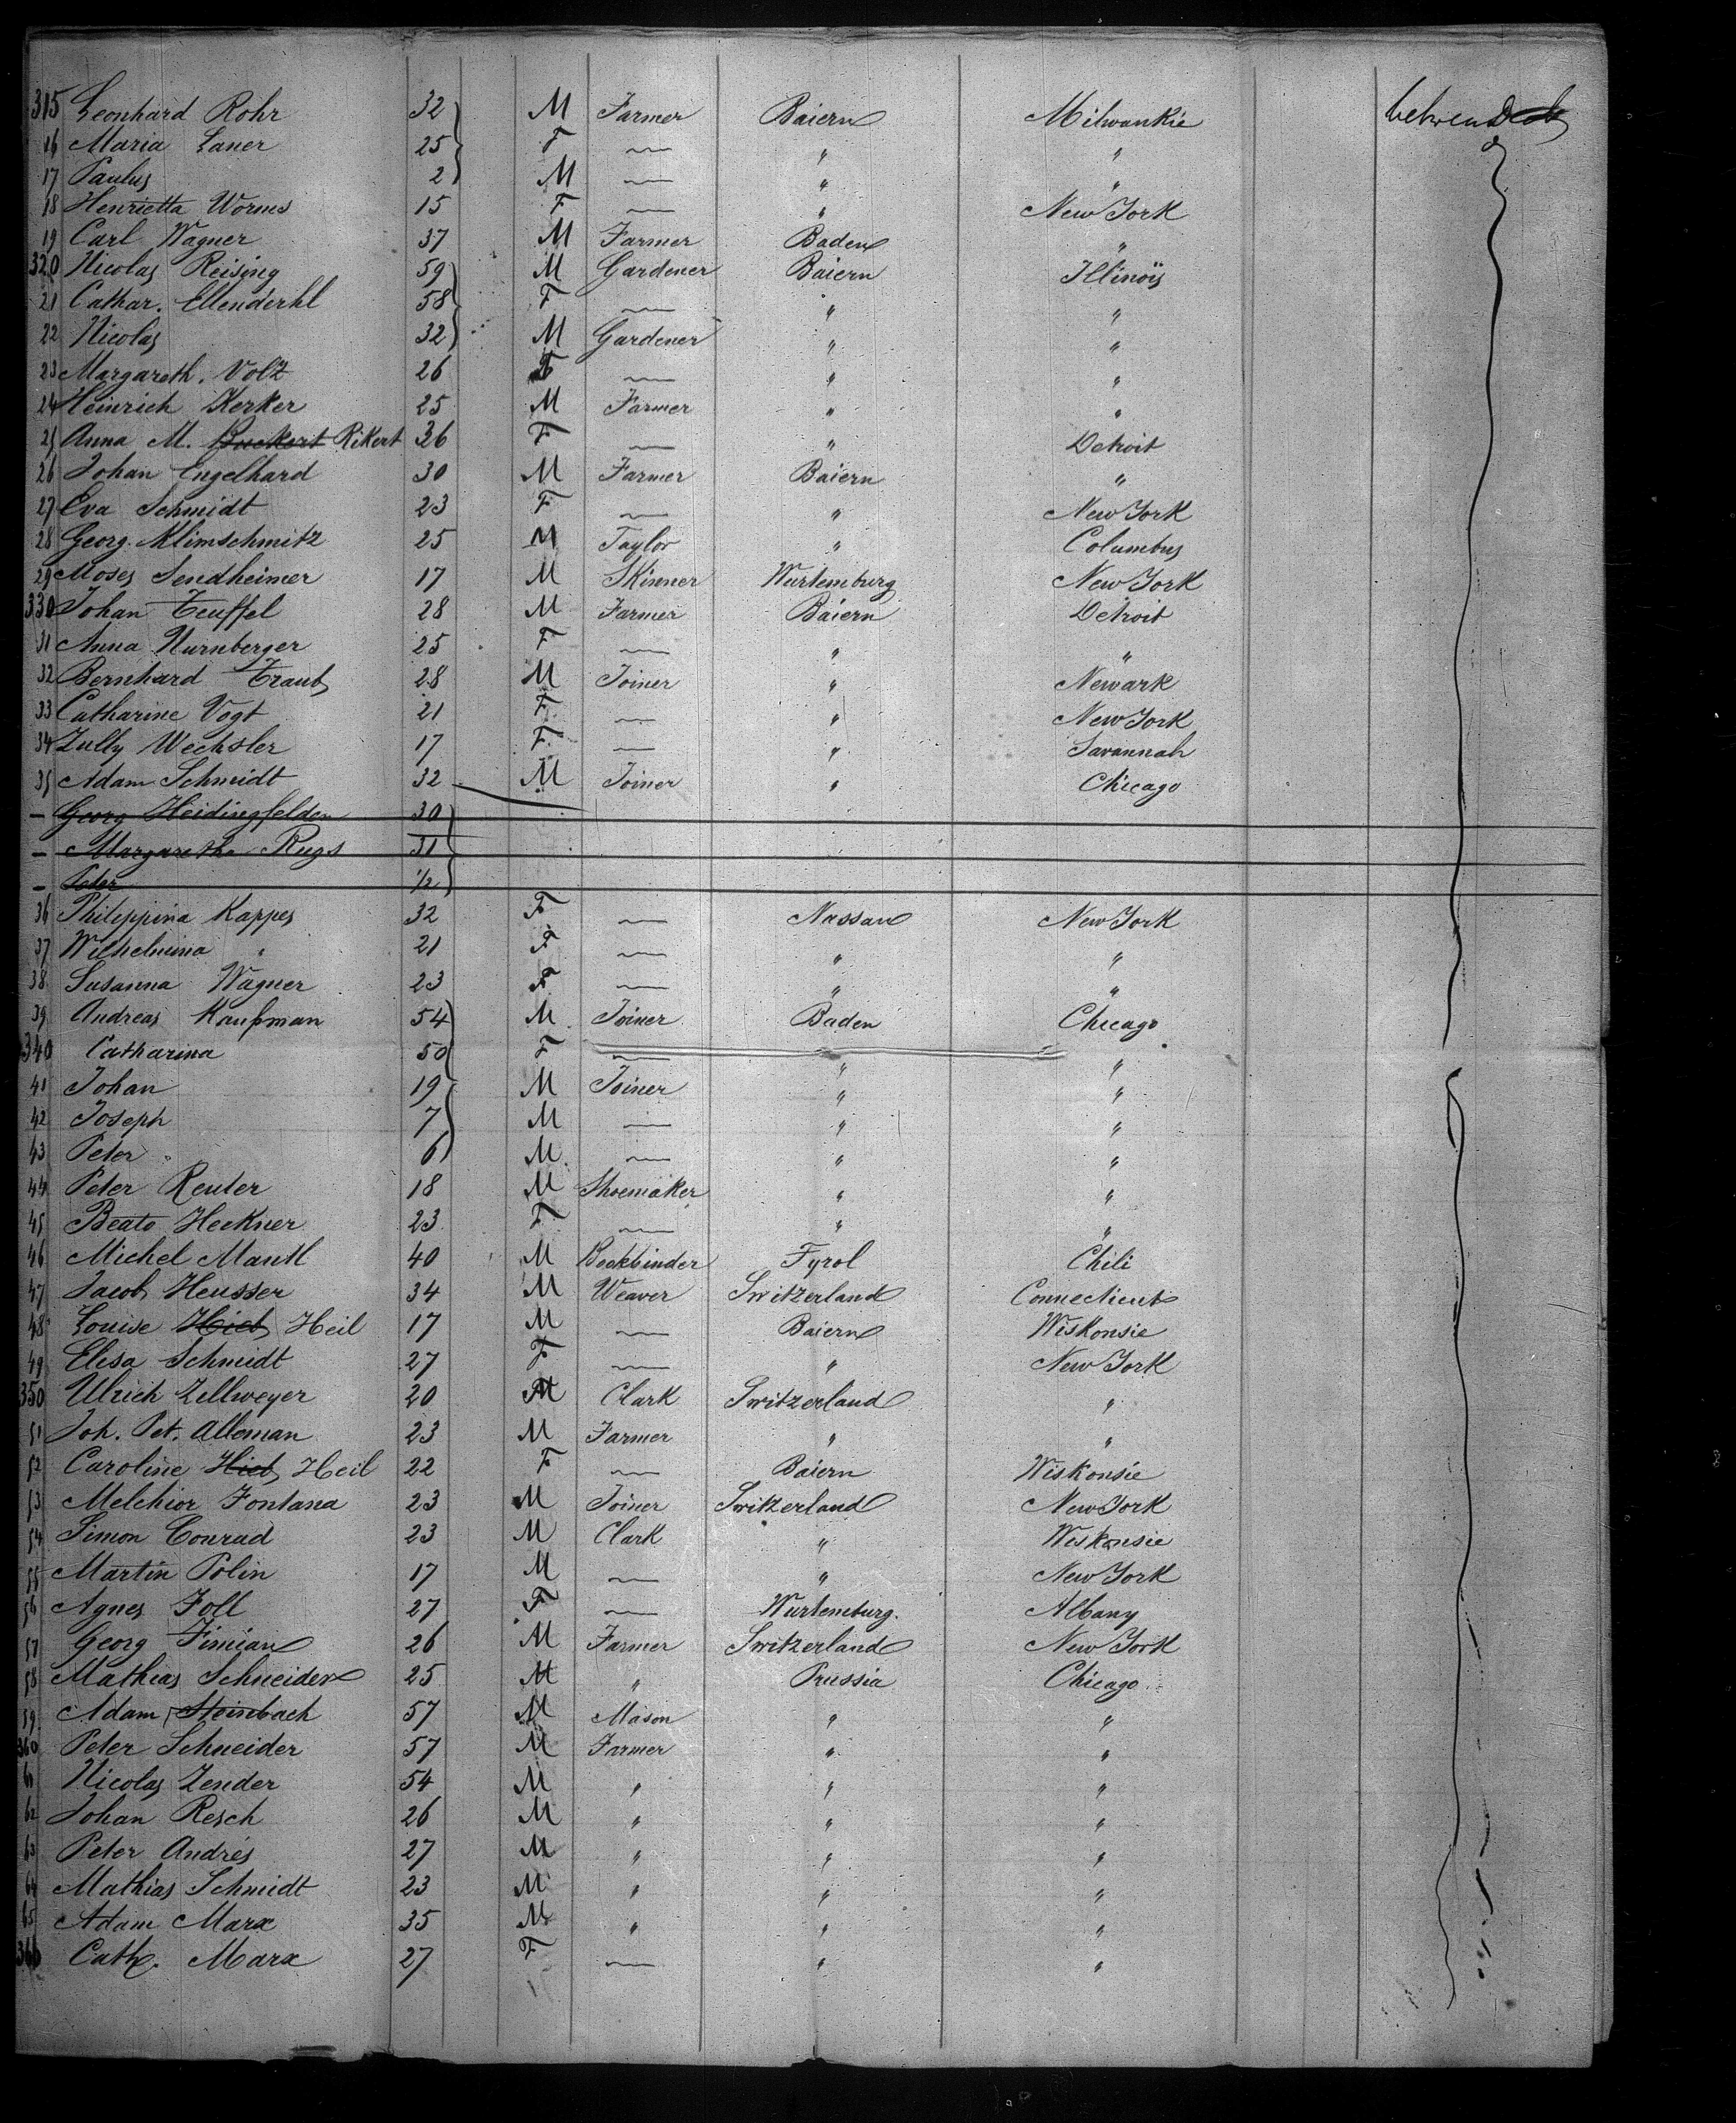 315 Leonhard Rohr 32 M Farmer Baiern Milwaukie between Deck
16 Maria Laner 25 F — " "
17 Paulus 2 M — " "
18 Henrietta Worms 15 F — " New York
19 Carl Wagner 37 M Farmer Baden "
320 Nicolas Reising 59 M Gardener Baiern Illinois
21 Cathar. Ellenderhl 58 F — " "
22 Nicolas 32 M Gardener " "
23 Margareth. Volz 26 F — " "
24 Heinrich Kerker 25 M Farmer " "
25 Anna M. Ruckert Rikert 36 F — " Detroit
26 Johan Engelhard 30 M Farmer Baiern "
27 Eva Schmidt 23 F — " New York
28 Georg. Klimschmitz 25 M Taylor " Columbus
29 Moses Sendheimer 17 M Skinner Wurtemburg New York
330 Johan Teuffel 28 M Farmer Baiern Detroit
31 Anna Nurnberger 25 F — " "
32 Bernhard Traub 28 M Joiner " Newark
33 Catharine Vogt 21 F — " New York
34 Zully Wechsler 17 F — " Savannah
35 Adam Schmidt 32 M Joiner " Chicago
— Georg Heidingsfelden 30
— Margaretha Rugs 31
— Peter 1/2
36 Philippina Kappes 32 F — Nassau New York
37 Wilhelmina " 21 F — " "
38 Susanna Wagner 23 F — " "
39 Andreas Kaufman 54 M Joiner Baden Chicago
340 Catharina 50 F — " "
41 Johan 19 M Joiner " "
42 Joseph 7 M — " "
43 Peter " 6 M — " "
44 Peter Reuter 18 M Shoemaker " "
45 Beato Heckner 23 F — " "
46 Michel Mantl 40 M Bookbinder Tyrol Chili
47 Jacob Heusser 34 M Weaver Switzerland Connecticut
48 Louise Hieb Heil 17 M — Baiern Wiskonsie
49 Elisa Schmidt 27 F — " New York
350 Ulrich Zellweyer 20 M Clark Switzerland "
51 Joh. Pet. Alleman 23 M Farmer " "
52 Caroline Hieb Heil 22 F — Baiern Wiskonsie
53 Melchior Fontana 23 M Joiner Switzerland New York
54 Simon Conrad 23 M Clark " Wiskonsie
55 Martin Polin 17 M — " New York
56 Agnes Foll 27 F — Wurtemburg. Albany
57 Georg Fimian 26 M Farmer Switzerland New York
58 Mathias Schneider 25 M " Prussia Chicago
59 Adam Steinbach 57 M Mason " "
360 Peter Schneider 57 M Farmer " "
61 Nicolas Zender 54 M " " "
62 Johan Resch 26 M " " "
63 Peter Andrés 27 M " " "
64 Mathias Schmidt 23 M " " "
65 Adam Marx 35 M " " "
366 Cath. Marx 27 F — " "